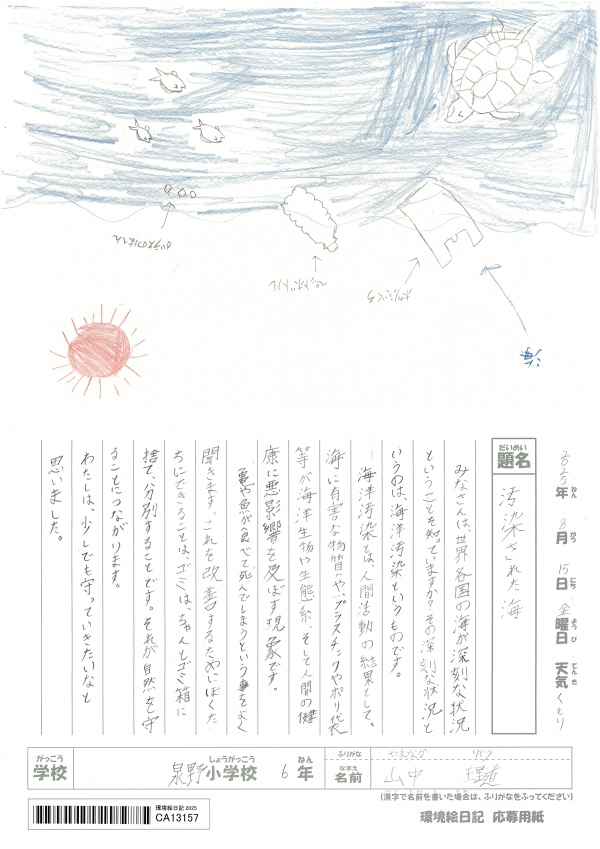 ガラスのはへん
ペットボトル
ポリぶくろ
2025年ねん 8月がつ 15日にち 金曜日ようび 天気てんき くもり
題名だいめい 汚染された海
みなさんは、世界各国の海が深刻な状況
ということを知っていますか？その深刻な状況と
いうのは、海洋汚染というものです。
海洋汚染とは、人間活動の結果として、
海に有害な物質や、プラスチックやポリ袋
等が海洋生物や生態系、そして人間の健
康に悪影響を及ぼす現象です。
亀や魚が食べて死んでしまうという事をよく
聞きます。これを改善するためにぼくた
ちにできることは、ゴミは、ちゃんとゴミ箱に
捨て、分別することです。それが自然を守
ることにつながります。
わたしは、少しでも守っていきたいなと
思いました。
学校がっこう 泉野小学校しょうがっこう 6年ねん
ふりがな やまなか
名前なまえ 山中
(漢字で名前を書いた場合は、ふりがなをふってください)
環境絵日記 2025
CA13157
環境絵日記 応募用紙